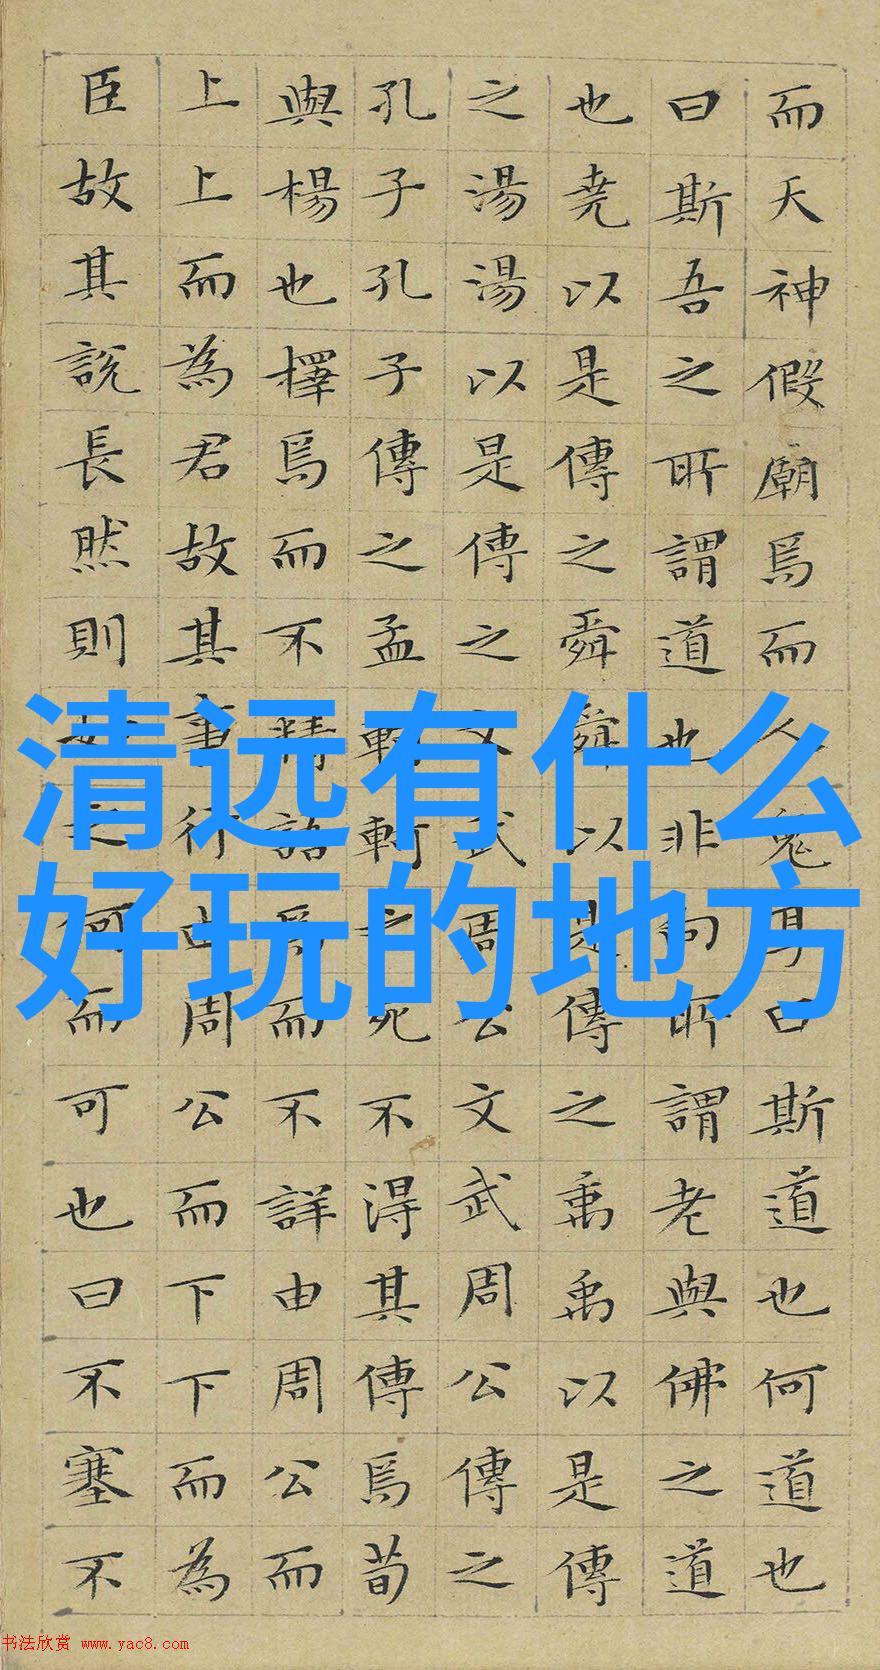 而天神假廟焉而人鬼享曰斯道也何道也
曰斯吾之所謂道也非向所謂老與佛之道
也堯以是傳之舜舜以是傳之禹禹以是傳
之湯湯以是傳之文武周公文武周公傳之
孔子孔子傳之孟軻軻之死不得其傳焉荀
與楊也擇焉而不精語焉而不詳由周公而
上上而為君故其事行由周公而下下而為
臣故其說長然則如之何而可也曰不塞不
清远有什么
好玩的地方
书法欣赏 www.yac8.com